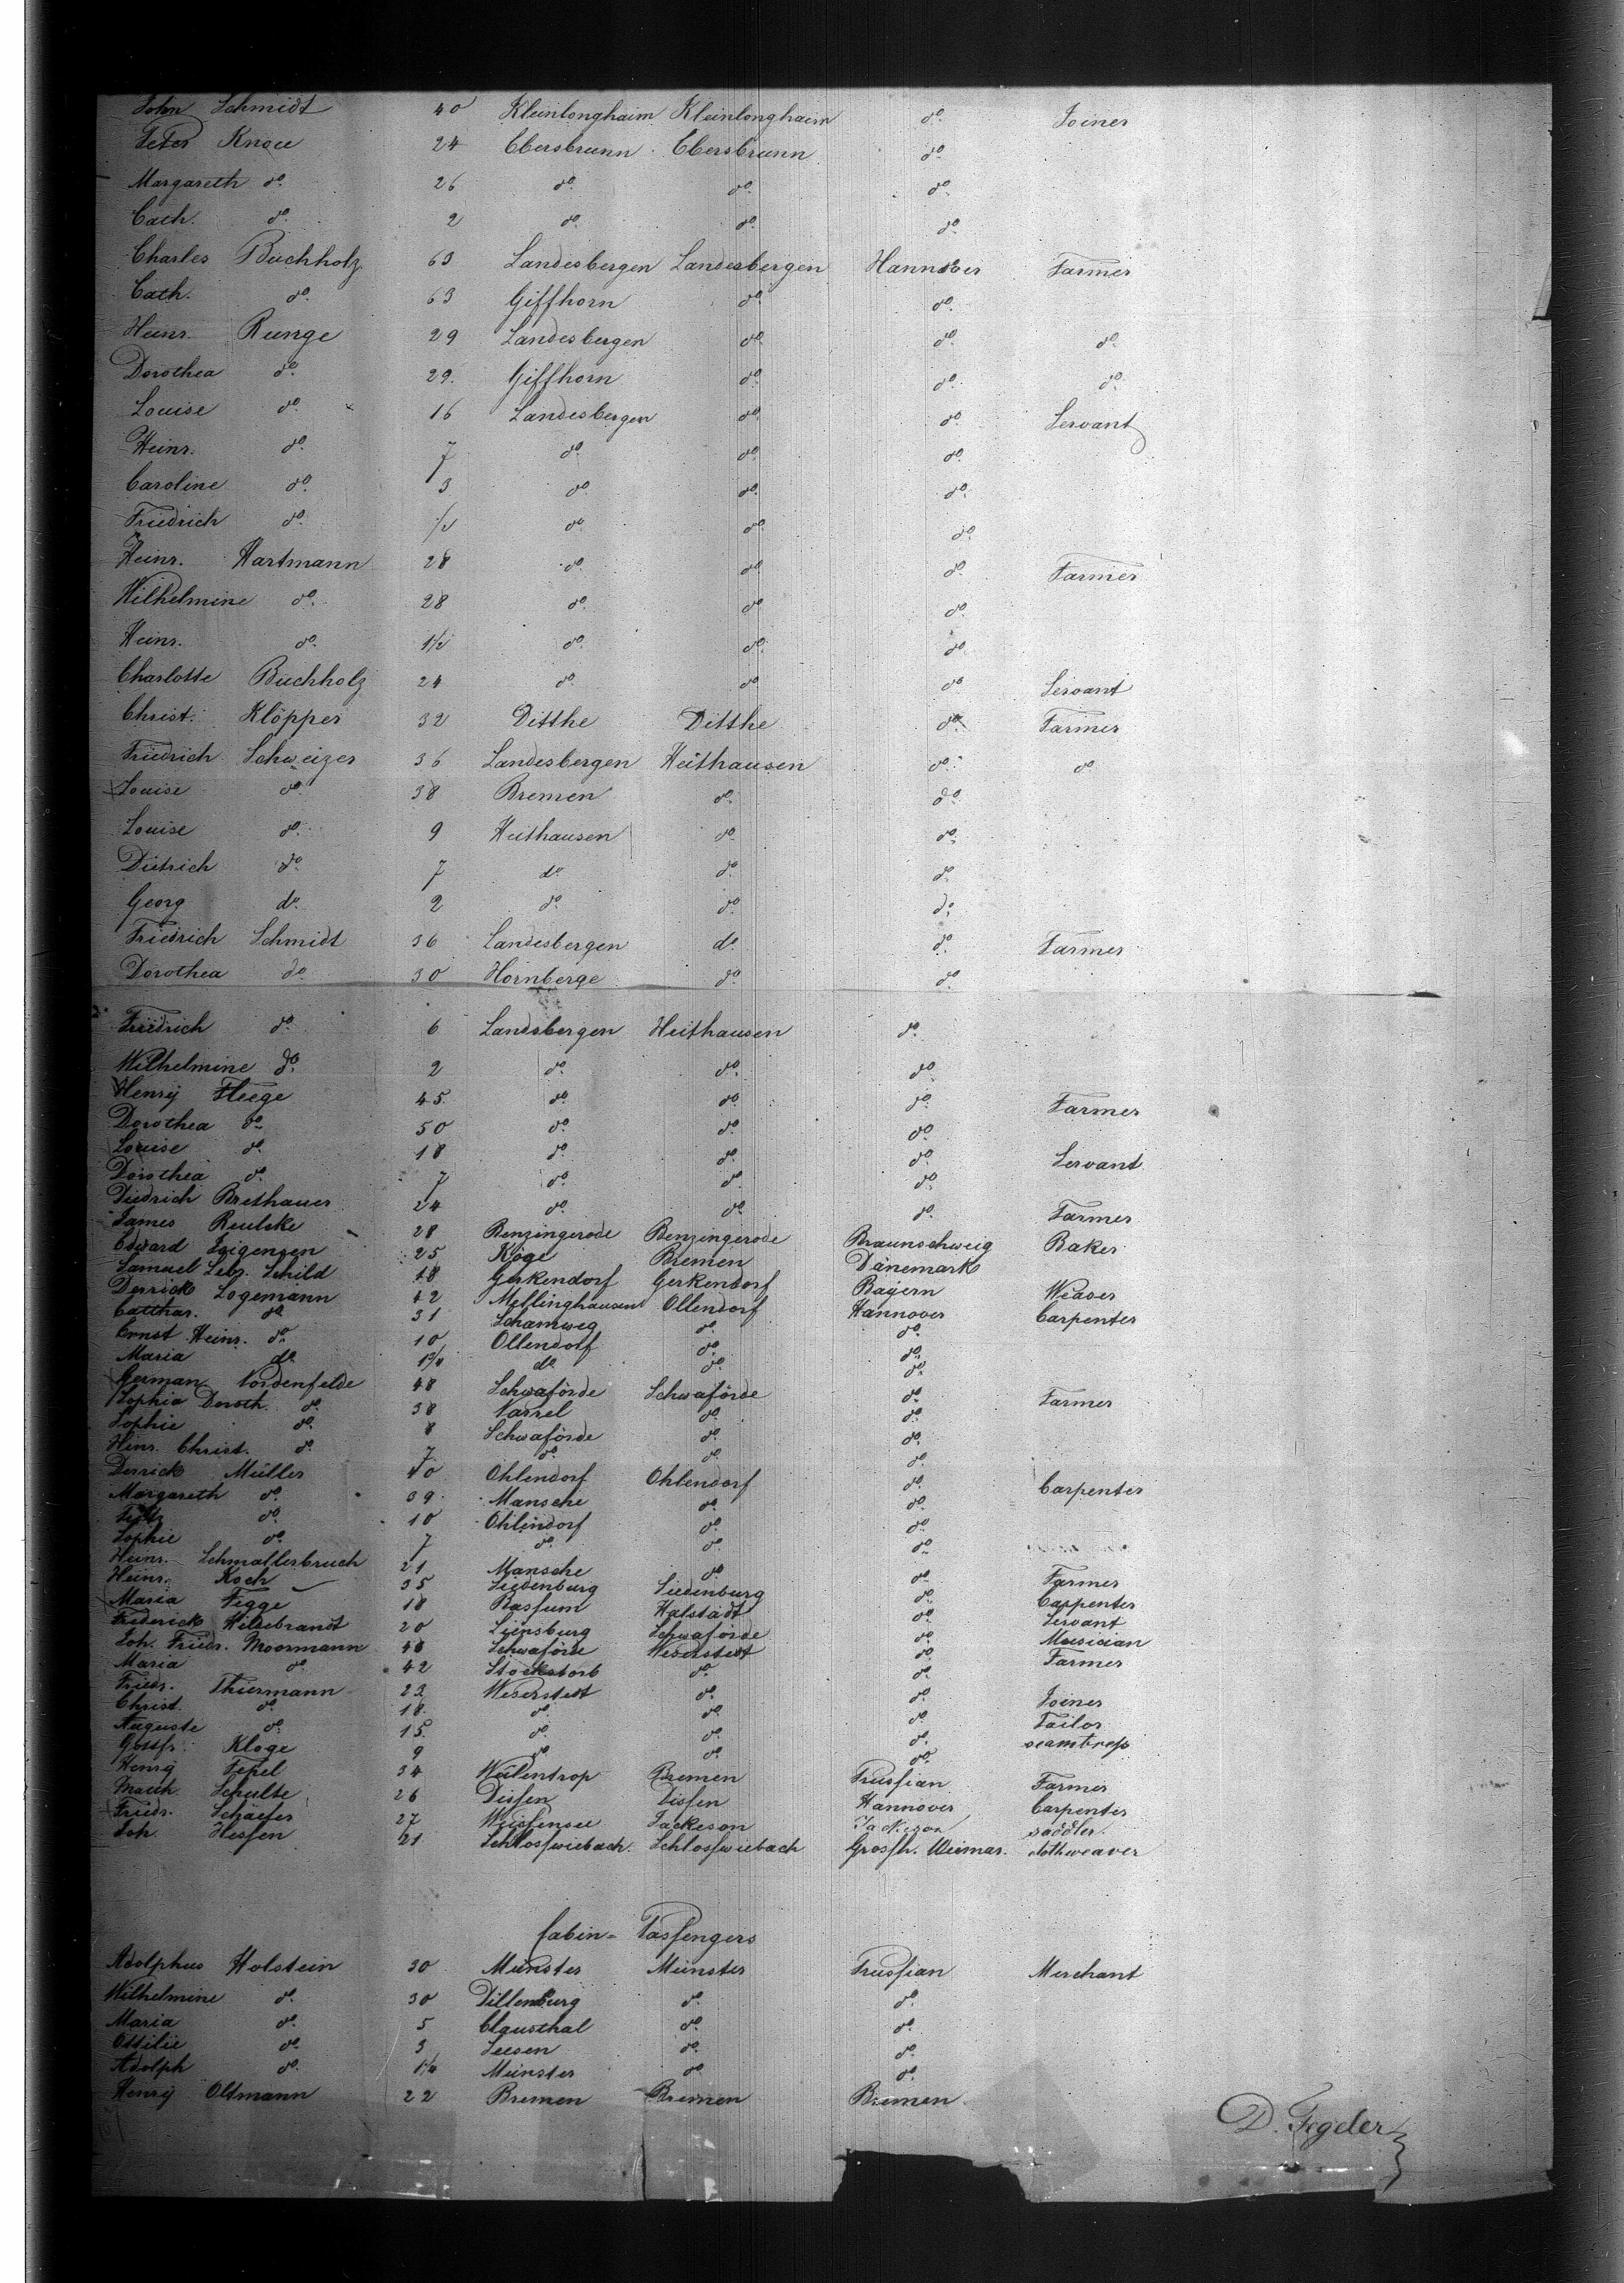 John Schmidt 40 Kleinlonghaim Kleinlonghaim do. Joiner
Peter Knoll 24 Ebersbrunn Ebersbrunn do.
Margareth do. 26 do. do. do.
Cath. do. 2 do. do. do.
Charles Buchholz 63 Landesbergen Landesbergen Hannover Farmer
Cath. do. 63 Giffhorn do. do.
Heinr. Runge 29 Landesbergen do. do. do.
Dorothea do. 29. Giffhorn do. do. do.
Louise do. 16 Landesbergen do. do. Servant
Heinr. do. 7 do. do. do.
Caroline do. 3 do. do. do.
Friedrich do. 1/2 do. do. do.
Heinr. Hartmann 28 do. do. do. Farmer
Wilhelmine do. 28 do. do. do.
Heinr. do. 1 1/2 do. do. do.
Charlotte Buchholz 24 do. do. do. Servant
Christ. Klöpper 32 Ditthe Ditthe do. Farmer
Friedrich Schweizer 36 Landesbergen Heithausen do. do.
Louise do. 38 Bremen do. do.
Louise do. 9 Heithausen do. do.
Dietrich do. 7 do. do. do.
Georg do. 2 do. do. do.
Friedrich Schmidt 36 Landesbergen do. do. Farmer
Dorothea do. 30 Hornberge do. do.
Friedrich do. 6 Landsbergen Heithausen do.
Wilhelmine do. 2 do. do. do.
Henry Fleege 45. do. do. do. Farmer
Dorothea do. 50 do. do. do.
Louise do. 18 do. do. do. Servant
Dorothea do. 7 do. do. do.
Diedrich Brethauer 24 do. do. do. Farmer
James 28 Benzingerode Benzingerode Braunschweig Baker
Edward 25 Köge Bremen Dänemark
Samuel Schild 18 Gerkendorf Gerkendorf Bayern Weaver
Derrick Logemann 42 Mellinghausen Ollendorf Hannover Carpenter
Catthar. do. 31 Schamweg do. do.
Ernst Heinr. do. 10 Ollendorf do. do.
Maria do. do. do. do.
German Nordenfelde 48 Schwaförde Schwaförde do. Farmer
Sophia Doroth. do. 38 Varrel do. do.
Sophie do. 8 Schwaförde do. do.
Hinr. Christ. do. 7 do. do. do.
Derrick Müller 40 Ohlendorf Ohlendorf do. Carpenter
Margareth do. 39 Mansche do. do.
do. 10 Ohlendorf do. do.
Sophie do. 7 do. do. do.
Heinr. Schmallerbruch 21 Mansche do. do. Farmer
Heinr. Koch 35 Siedenburg Siedenburg do. Carpenter
Maria Figge 18 Bassum Halstadt do. Servant
Frederick Hildebrandt 20 Liensburg Schwaförde do. Musician
Joh. Friedr. Moormann 48 Schwaförde Weserstedt do. Farmer
Maria do. 42 Stockstorb do. do.
Friedr. Thiermann 23 Weserstedt do. do. Joiner
Christ. do. 18. do. do. do. Tailor
Auguste do. 15. do. do. do. seamtress
Gottfr. Kloge 9 do. do. do.
Henry Tepel 34 Walentrop Bremen Prussian Farmer
Schulte 26 Dissen Dissen Hannover Carpenter
Friedr. Schaefer 27 Weissensee Jackeson Jackeson saddler.
Joh. Hessen 21 Schlosswiebach. Schlosswiebach Grossh. Weimar. clothweaver
Cabin= Passengers
Adolphus Holstein 30 Münster Münster Prussian Merchant
Wilhelmine do. 30 Dillenburg do. do.
Maria do. 5 Clausthal do. do.
Ottilie do. 3 Seesen do. do.
Adolph do. 1 1/4 Münster do. do.
Henry Oltmann 22 Bremen Bremen Bremen
D. Fegeler